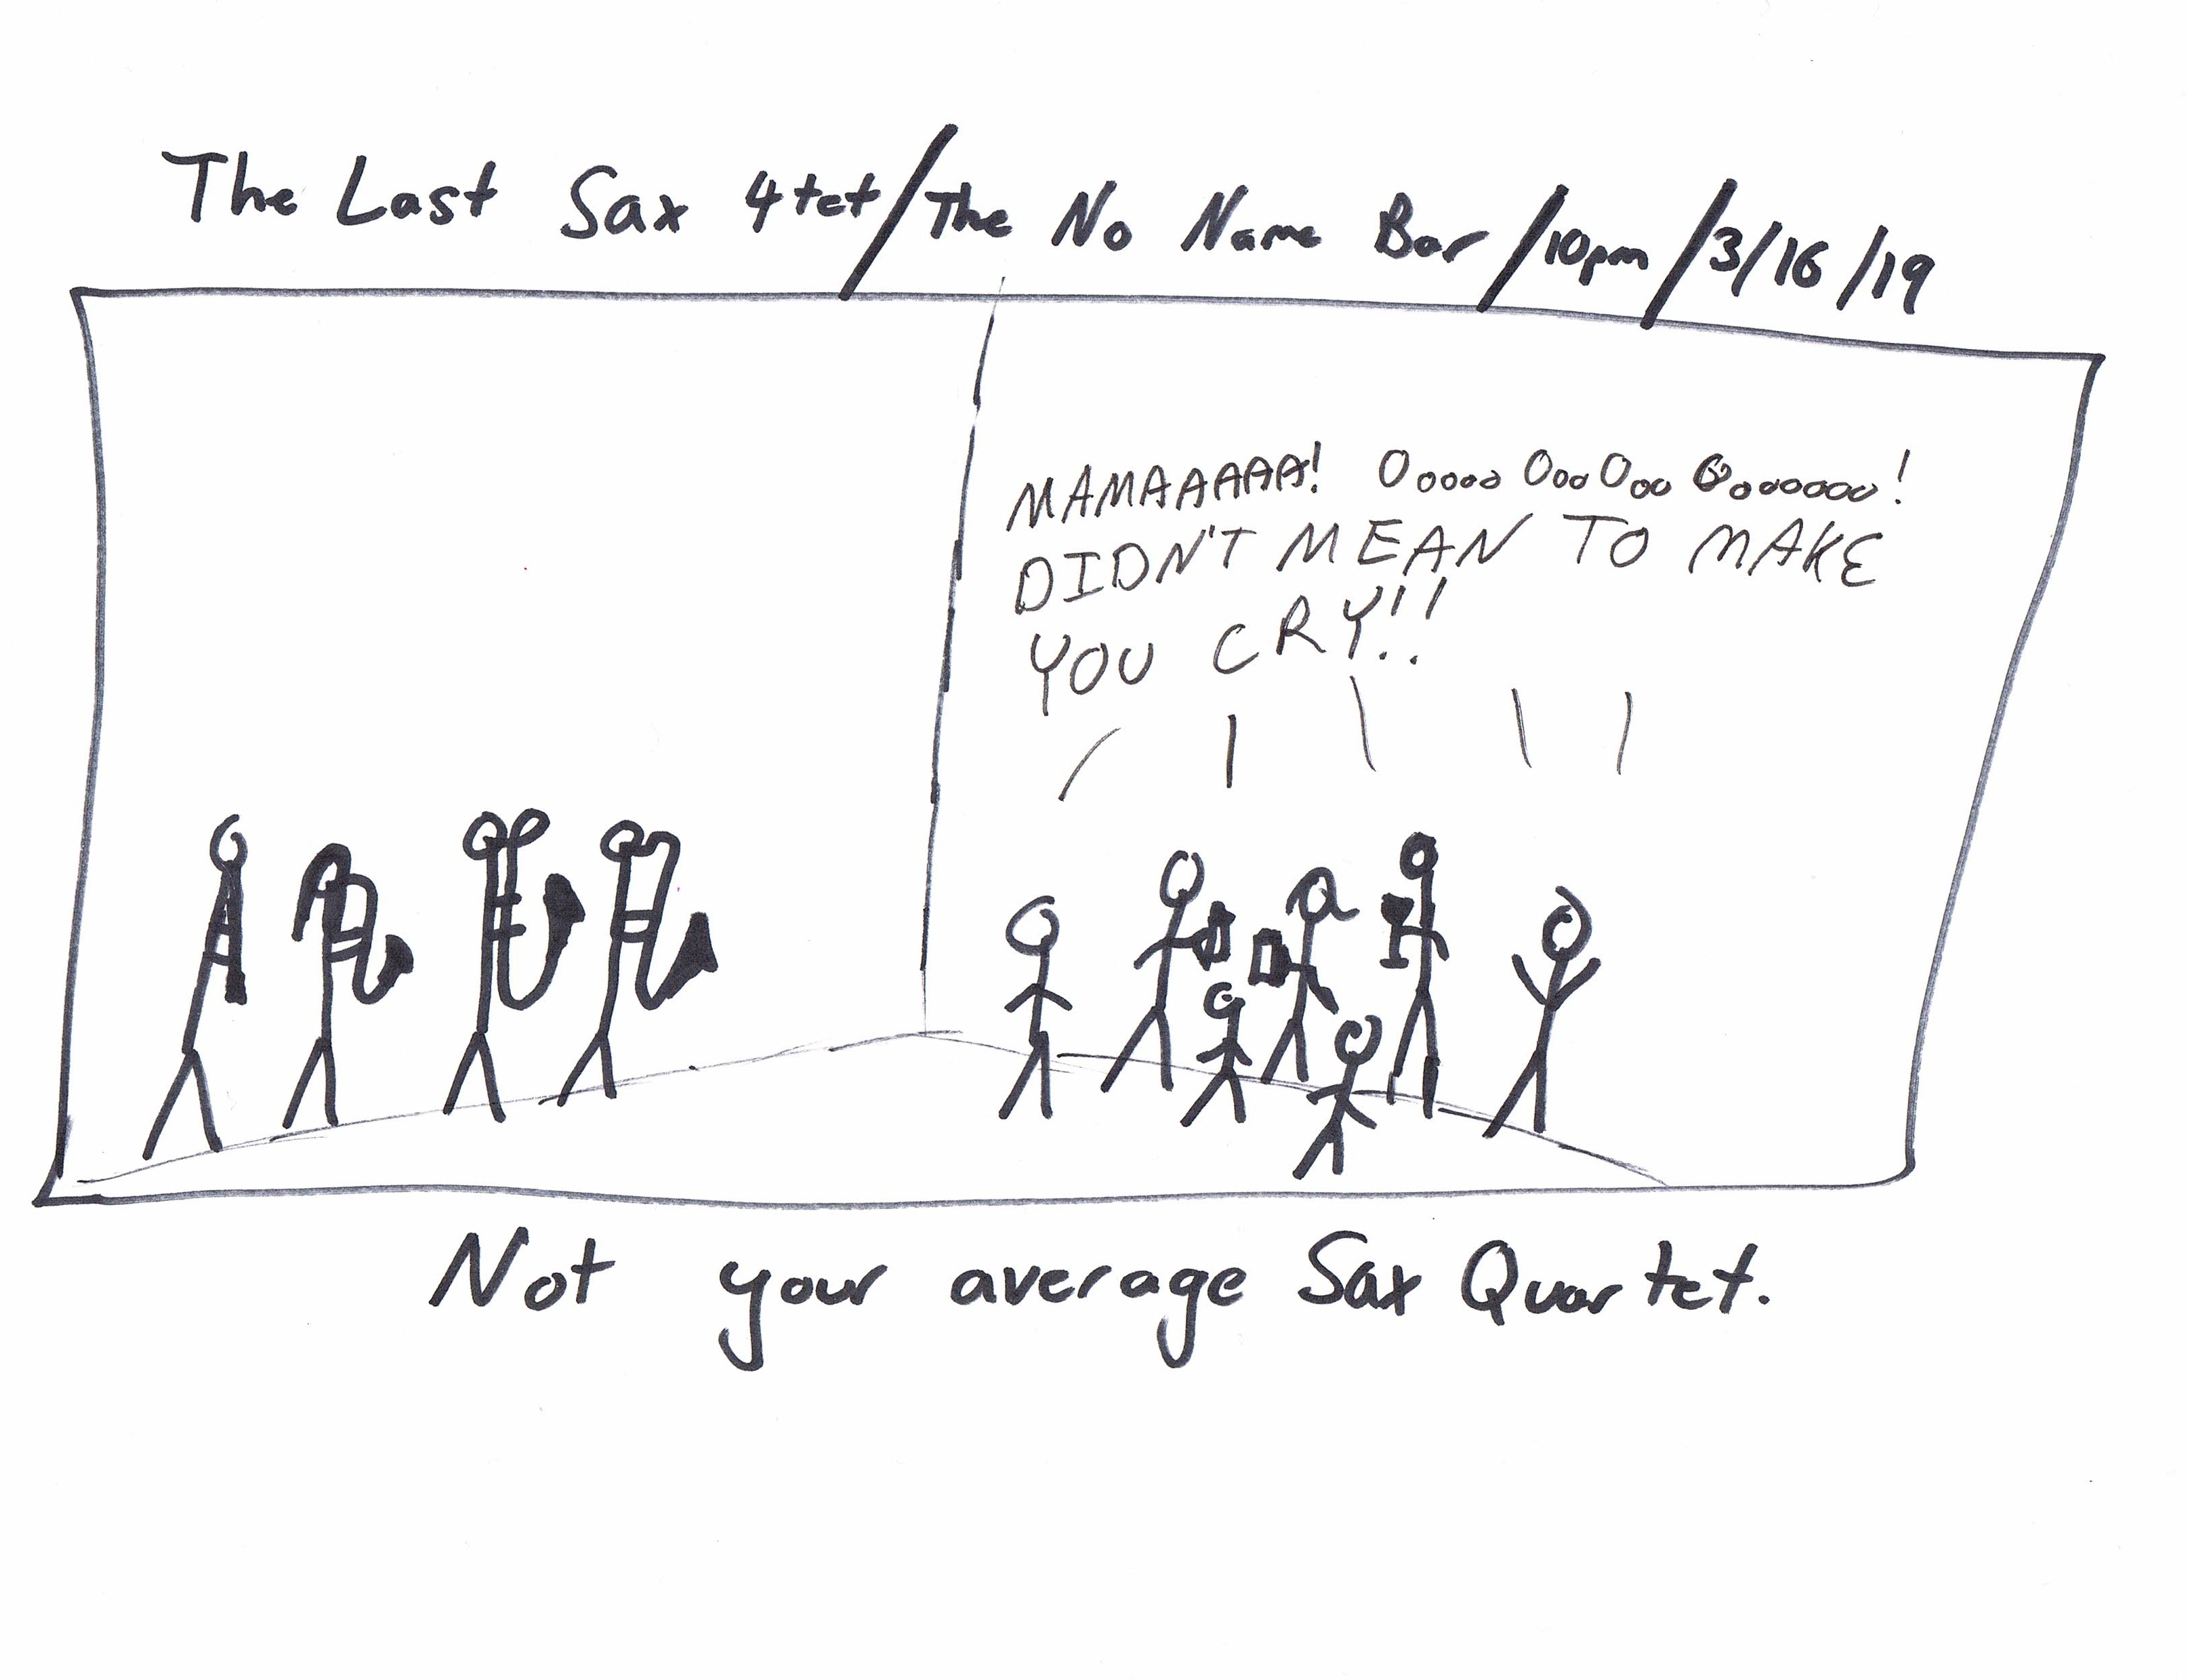 The Last Sax 4tet/The No Name Bar/10pm/3/16/19
MAMAAAAAA! Ooooo OooOoo Oooooooo!
DIDN'T MEAN TO MAKE
YOU CRY!!
Not your average Sax Quartet.